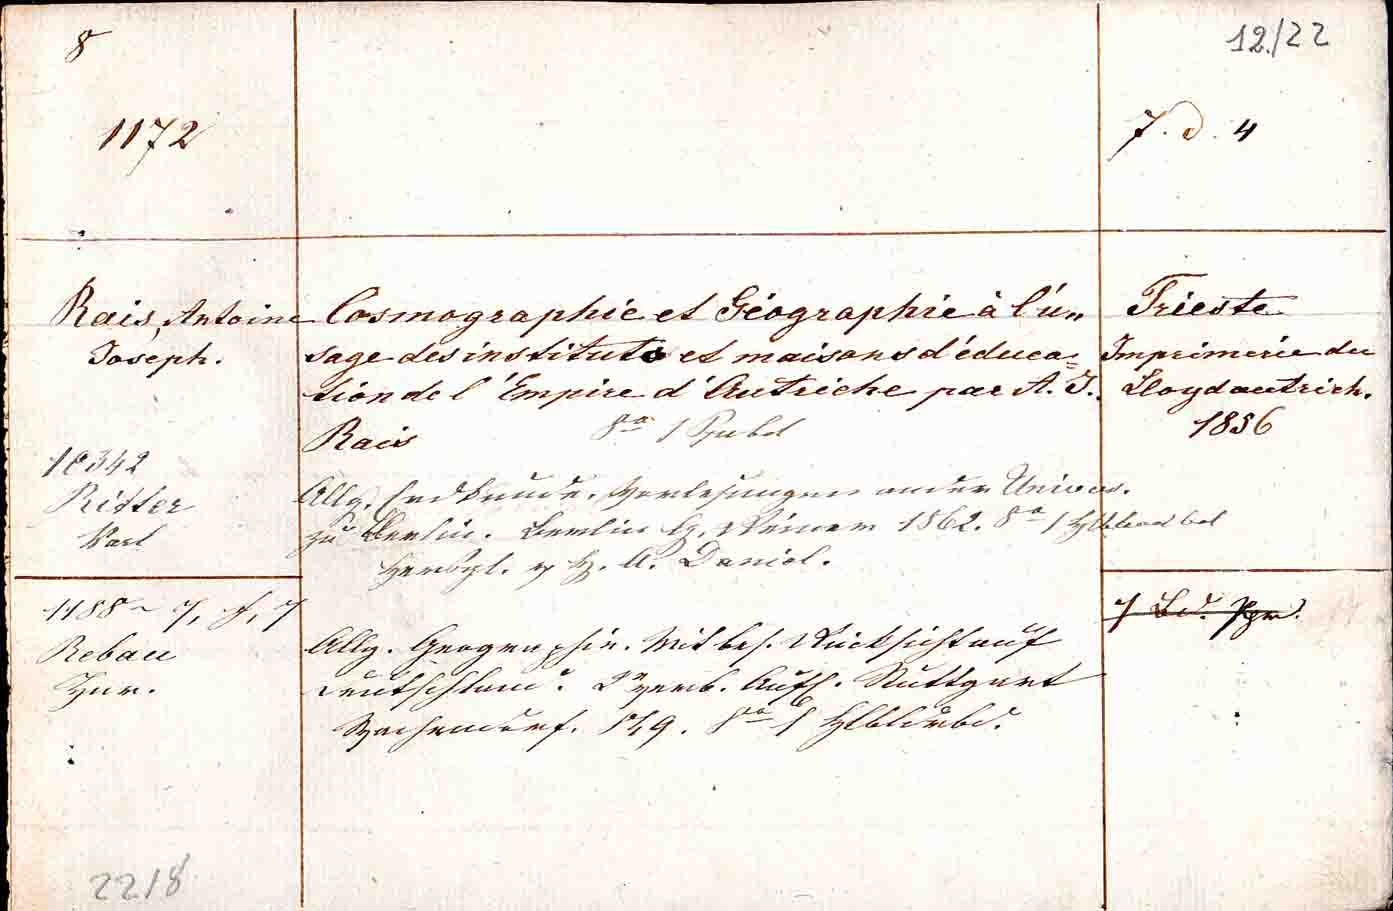 8
12./22
1172
7. d. 4
Rais Antoine
Joseph.
Cosmographie et Géographie à l'u„
sage des instituts et maisons d'éduca=
tion de l'Empire d'Autriche par A. J.
Rais
8° 1
Trieste
Imprimerie du
Lloyd autrich.
1856
10342
Ritter
Karl
Allg. Erdkunde. Vorlesungen an der Univers.
zu Berlin. Berlin G. Reimer 1862. 8° 1
Hersgg. v H. A. Daniel.
1188
Rebau
Hnr.
7 Bd.
Allg. Geographie. Mit bes. Rücksicht auf
Deutschland. 2 verb. Aufl. Stuttgart
849. 8° 1
2218